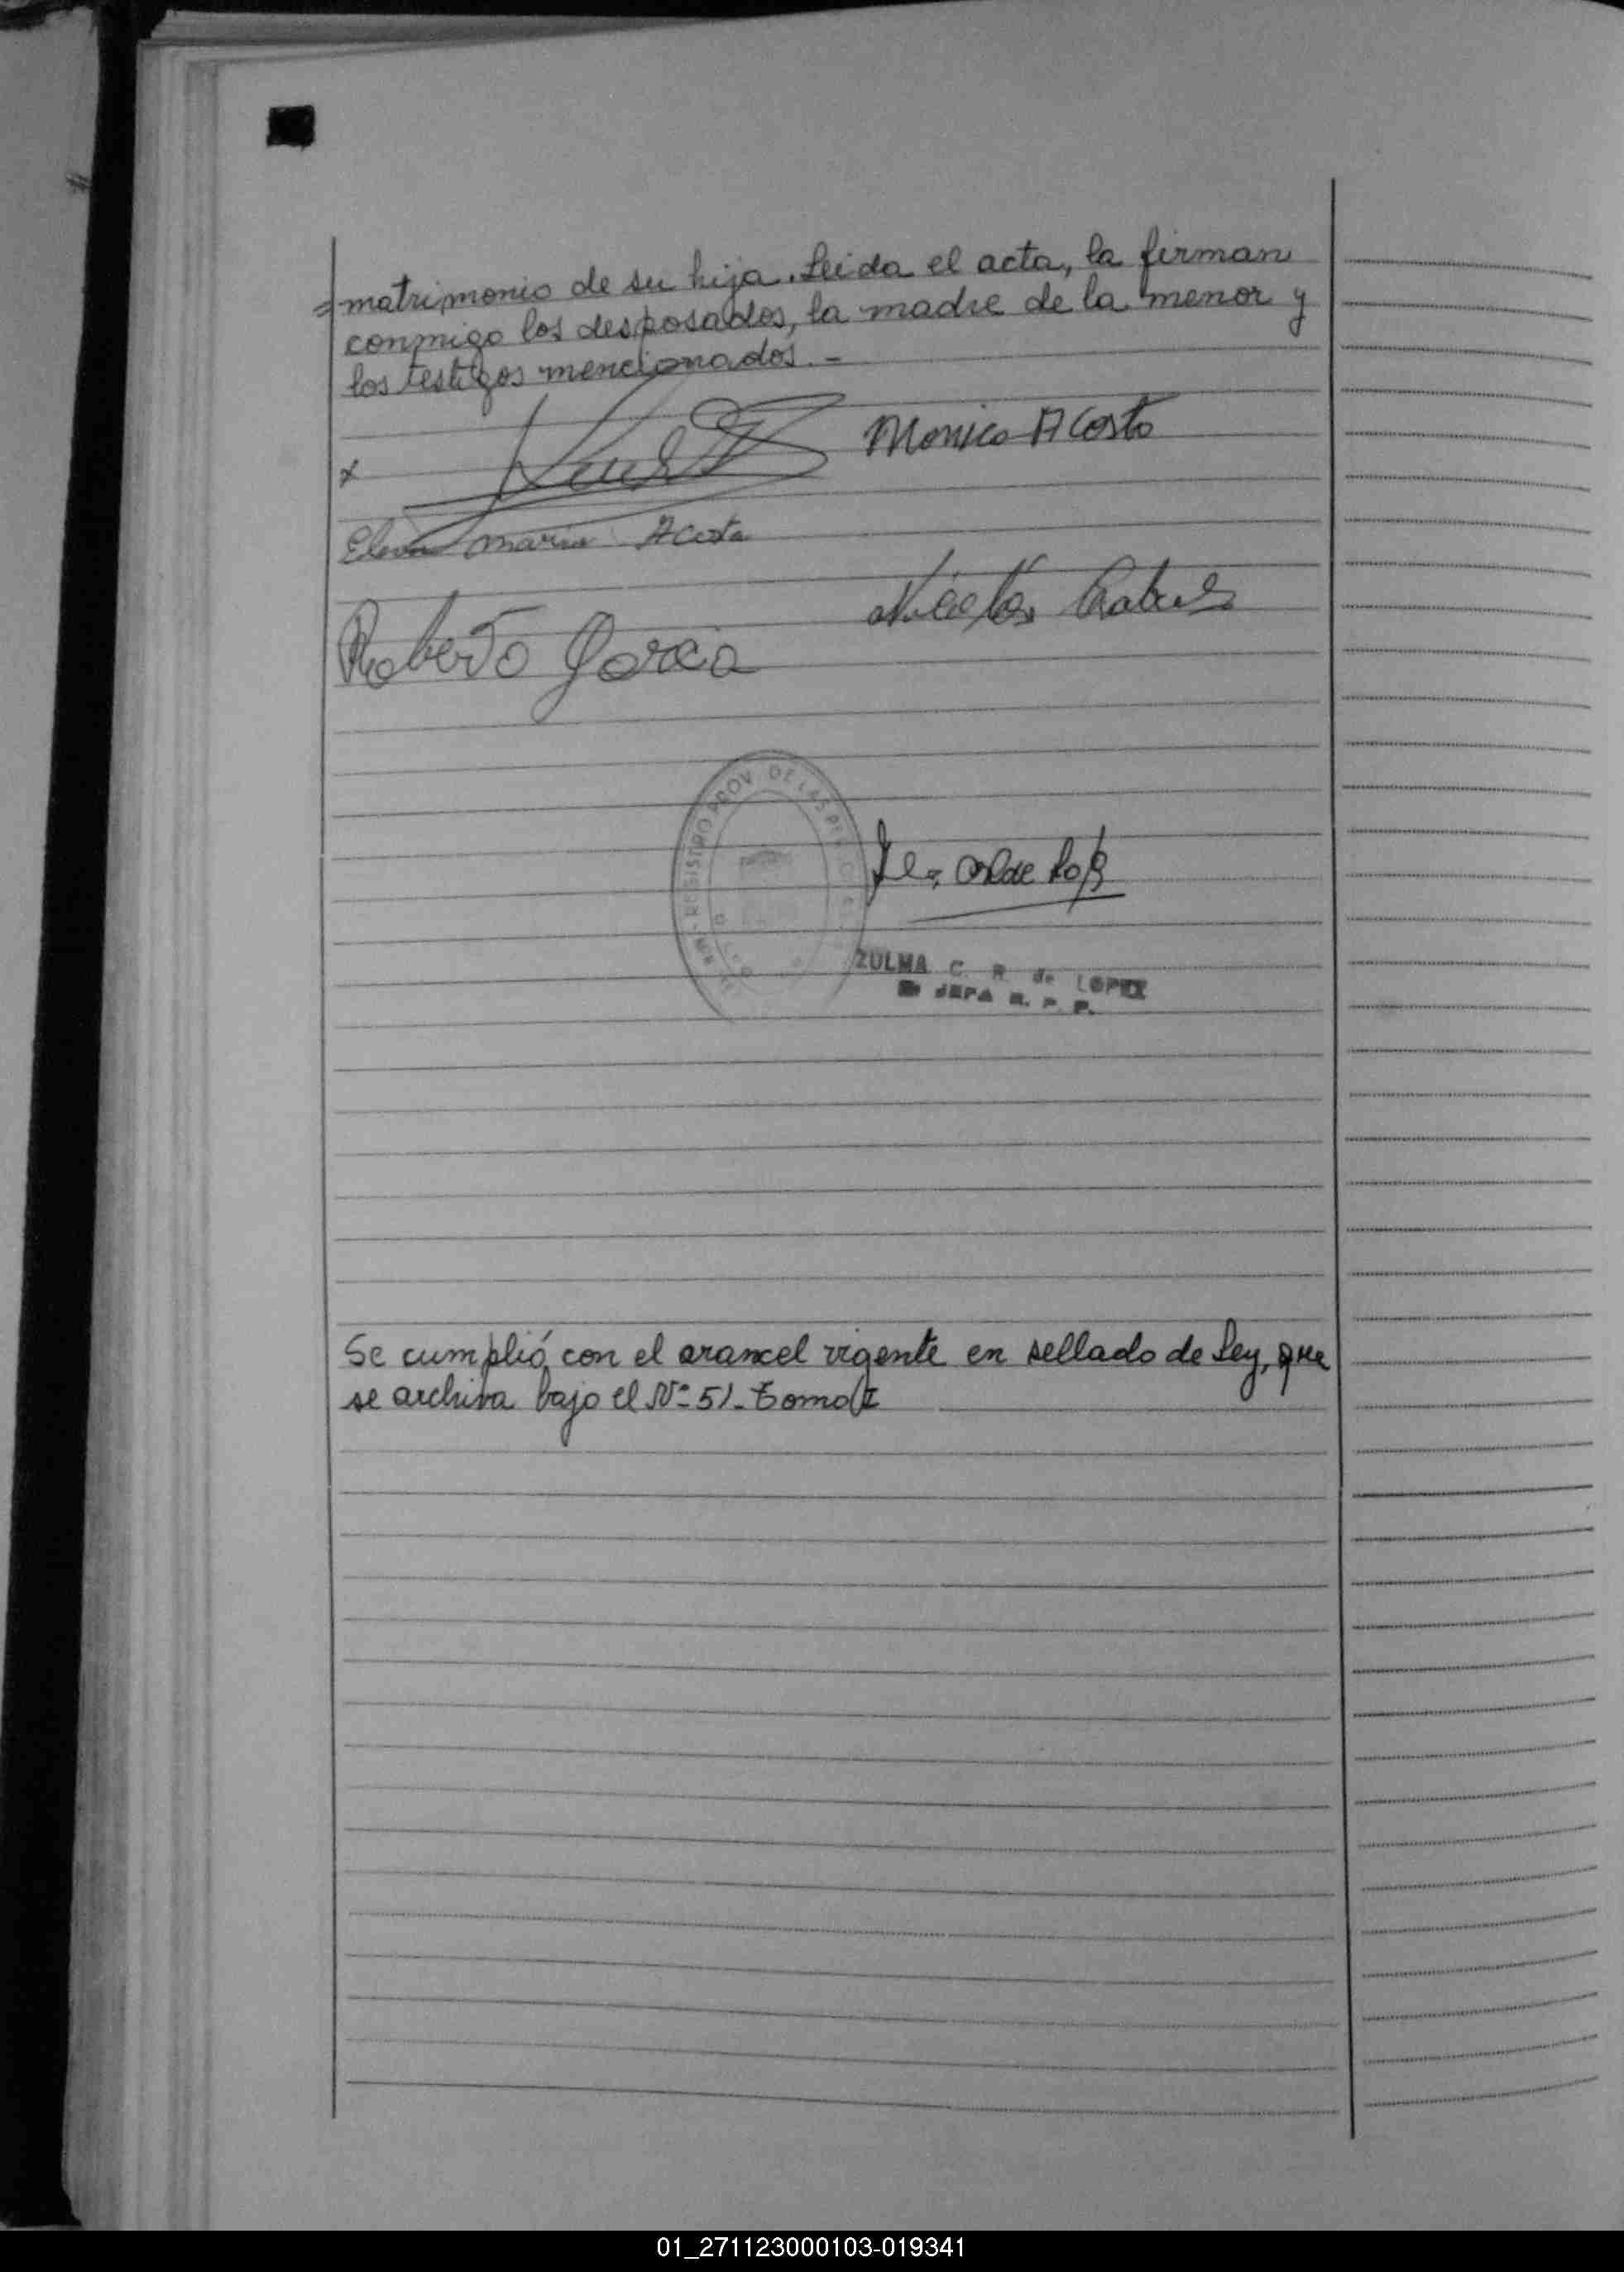 = matrimonio de su hija. Leida el acta, la firman
conmigo los desposados, la madre de la menor y
los testigos mencionados. -
x
Monica Acosta
Elena Maria Acosta
Nicolás
Roberto Garcia
REGISTRO PROV. DE LAS
ZULMA C. R. de LOPEZ
JEFA R. P. P.
Se cumplió con el arancel vigente en sellado de Ley, que
se archiva bajo el Nº 51 - Tomo I
01_271123000103-019341